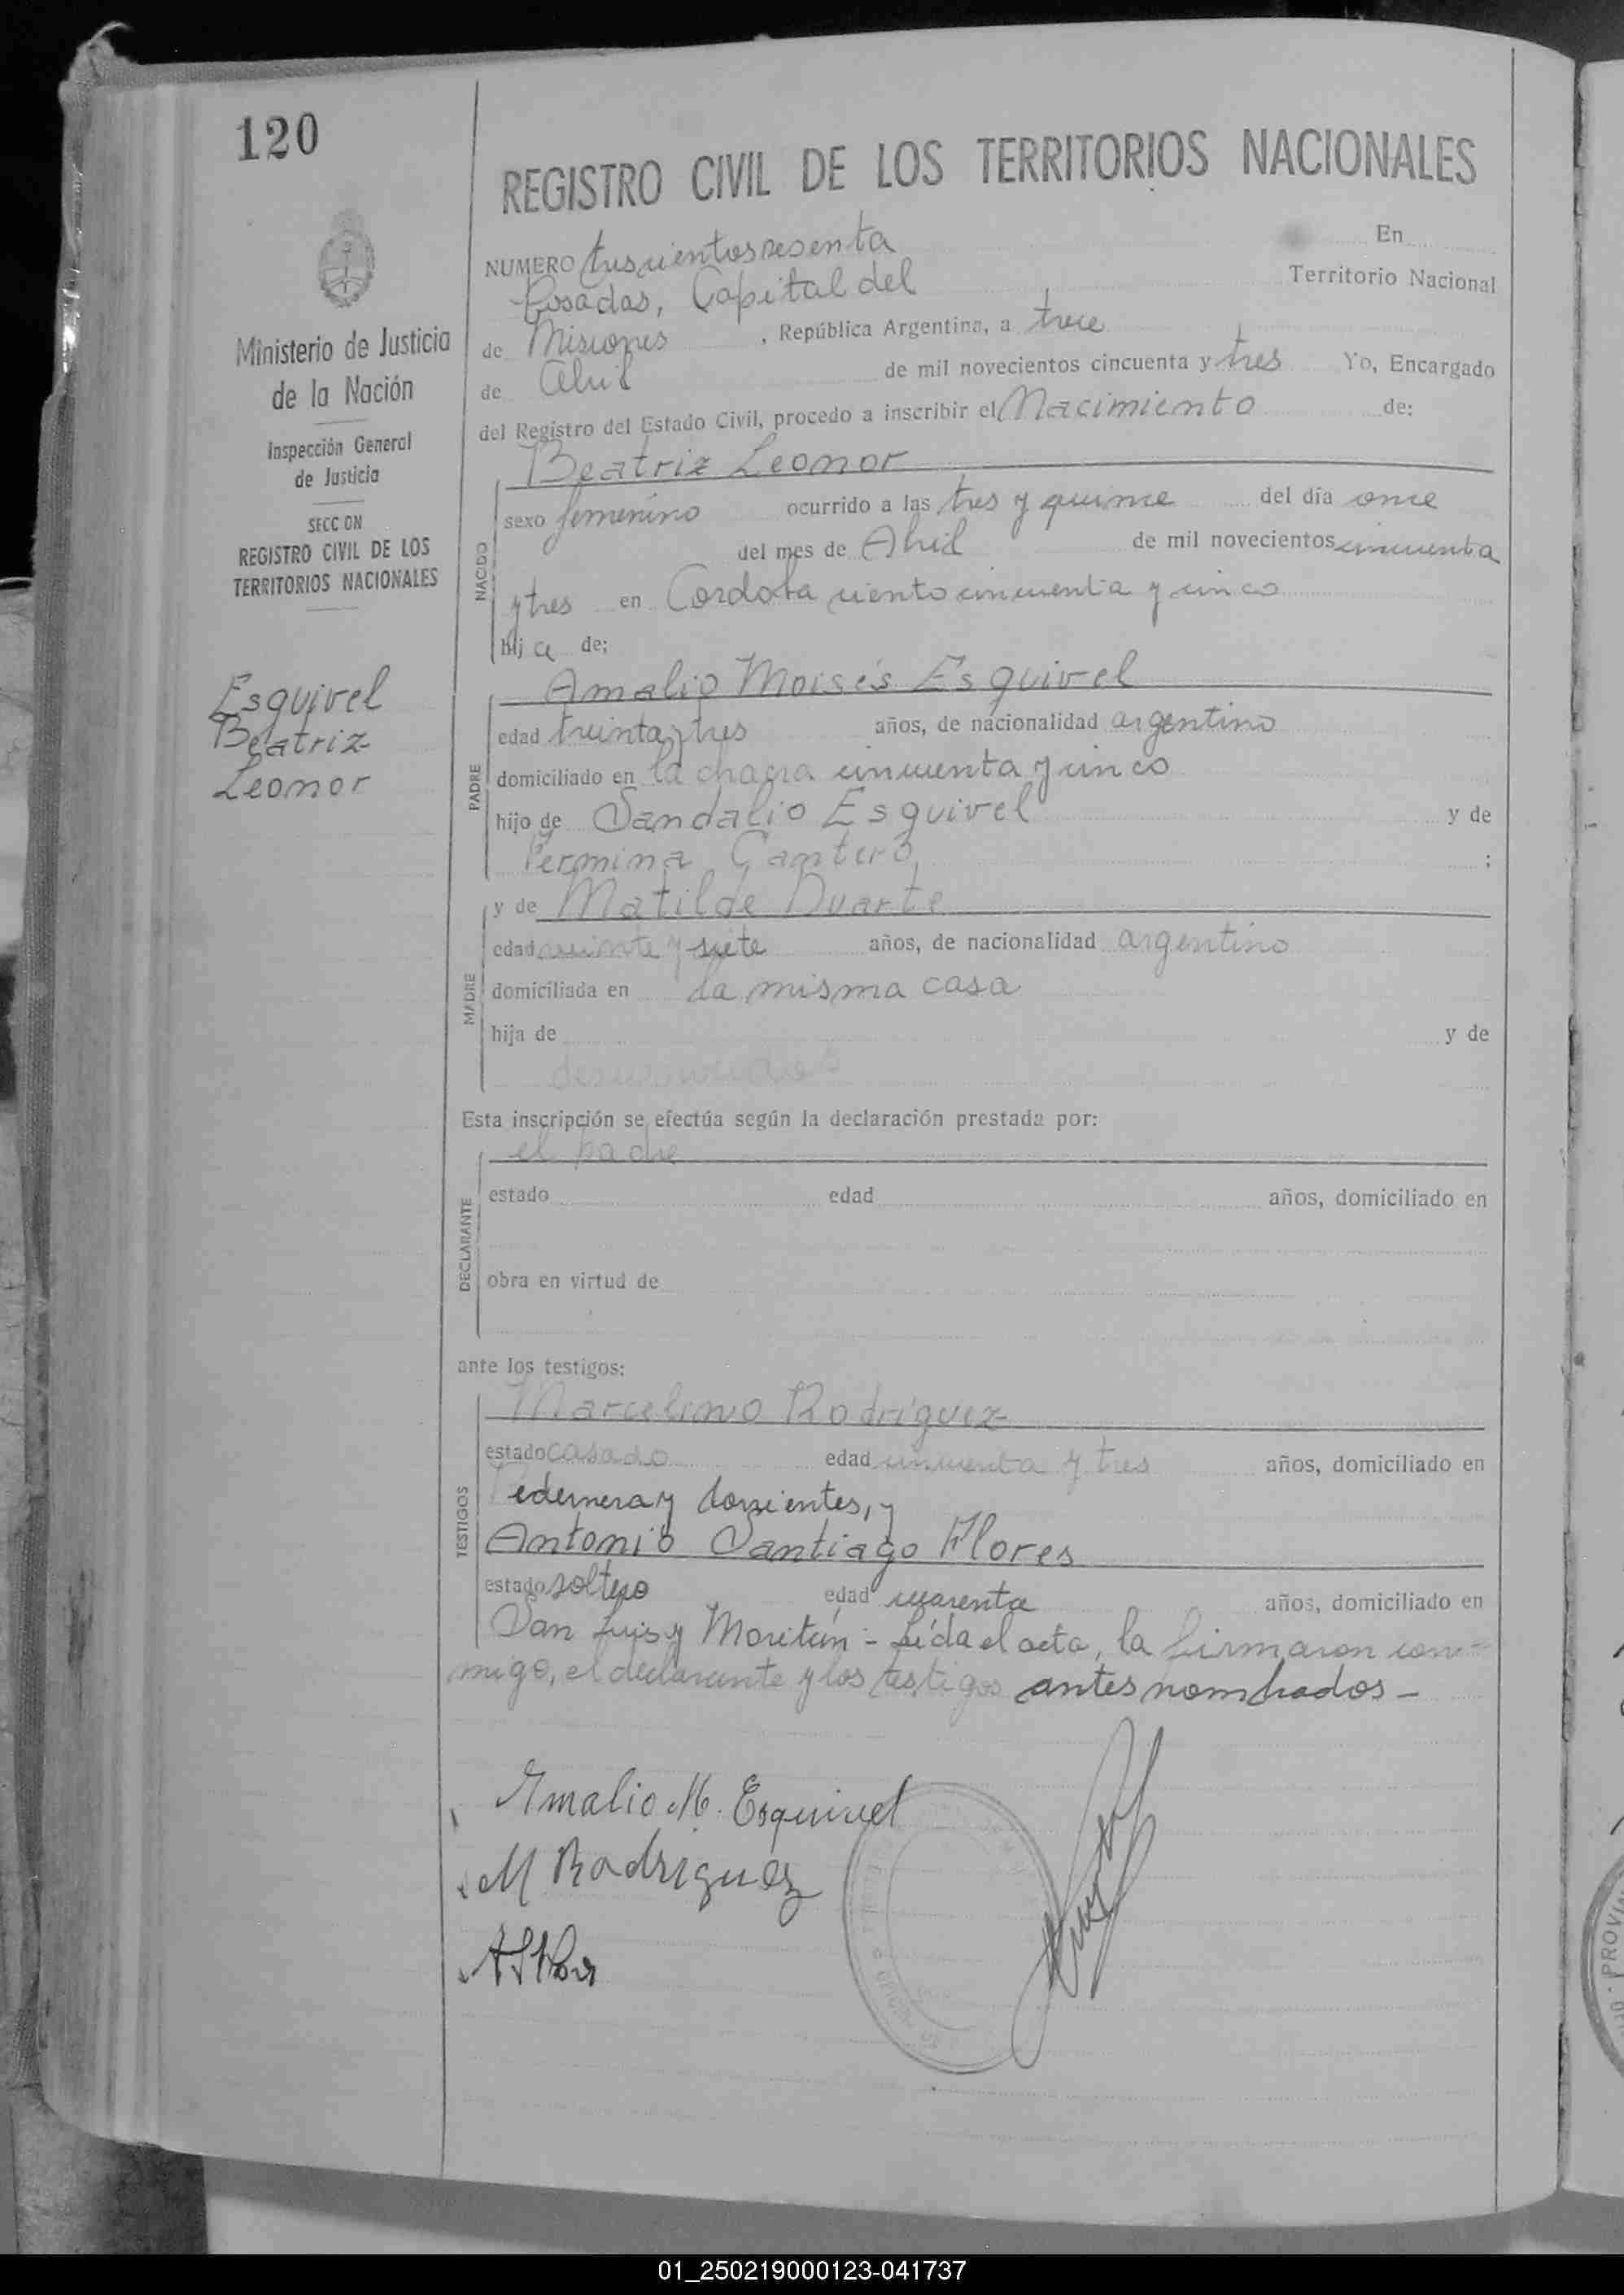 120
REGISTRO CIVIL DE LOS TERRITORIOS NACIONALES
Ministerio de Justicia
de la Nación
Inspección General
de Justicia
SECC ON
REGISTRO CIVIL DE LOS
TERRITORIOS NACIONALES
Esquivel
Beatriz
Leonor
NUMERO trescientos sesenta En
Posadas, Capital del Territorio Nacional
de Misiones, República Argentina, a trece
de Abril de mil novecientos cincuenta y tres Yo, Encargado
del Registro del Estado Civil, procedo a inscribir el Nacimiento de:
Beatriz Leonor
NACIDO
sexo femenino ocurrido a las tres y quince del día once
del mes de Abril de mil novecientos cincuenta
y tres en Cordoba ciento cincuenta y cinco
hij a de;
PADRE
Amalio Moisés Esquivel
edad treinta y tres años, de nacionalidad argentino
domiciliado en la chacra cincuenta y cinco
hijo de Sandalio Esquivel y de
Fermina Cantero ;
MADRE
y de Matilde Duarte
edad veinte y siete años, de nacionalidad argentino
domiciliada en la misma casa
hija de y de
Esta inscripción se efectúa según la declaración prestada por:
el padre
DECLARANTE
estado edad años, domiciliado en
obra en virtud de
ante los testigos:
TESTIGOS
Marcelino Rodriguez
estado casado edad cincuenta y tres años, domiciliado en
Pedernera y Corrientes, y
Antonio Santiago Flores
estado soltero edad cuarenta años, domiciliado en
San Luis y Moritán - Leída el acta, la firmaron con-
migo, el declarante y los testigos antes nombrados -
Amalio M. Esquivel
M Rodriguez
PROVI
01_250219000123-041737